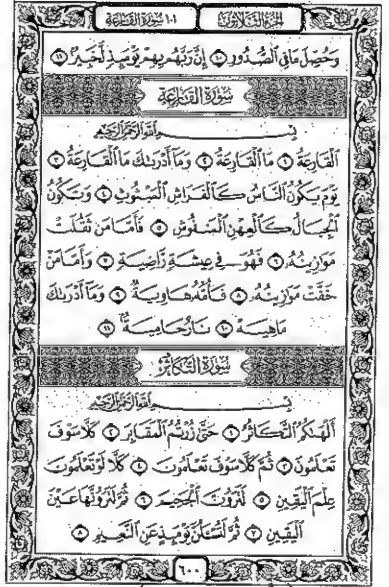 الجزء الثلاثون
١٠١ سورة القارعة
وَحُصِّلَ مَا فِي الصُّدُورِ ١٠ إِنَّ رَبَّهُم بِهِمْ يَوْمَئِذٍ لَّخَبِيرٌ ١١
سُورَةُ القَارِعَةِ
بِسْمِ اللَّهِ الرَّحْمَٰنِ الرَّحِيمِ
الْقَارِعَةُ ١ مَا الْقَارِعَةُ ٢ وَمَا أَدْرَىٰكَ مَا الْقَارِعَةُ ٣
يَوْمَ يَكُونُ النَّاسُ كَالْفَرَاشِ الْمَبْثُوثِ ٤ وَتَكُونُ
الْجِبَالُ كَالْعِهْنِ الْمَنفُوشِ ٥ فَأَمَّا مَن ثَقُلَتْ
مَوَٰزِينُهُ ٦ فَهُوَ فِي عِيشَةٍ رَّاضِيَةٍ ٧ وَأَمَّا مَنْ
خَفَّتْ مَوَٰزِينُهُ ٨ فَأُمُّهُ هَاوِيَةٌ ٩ وَمَا أَدْرَىٰكَ
مَا هِيَهْ ١٠ نَارٌ حَامِيَةٌ ١١
سُورَةُ التَّكَاثُرِ
بِسْمِ اللَّهِ الرَّحْمَٰنِ الرَّحِيمِ
أَلْهَىٰكُمُ التَّكَاثُرُ ١ حَتَّىٰ زُرْتُمُ الْمَقَابِرَ ٢ كَلَّا سَوْفَ
تَعْلَمُونَ ٣ ثُمَّ كَلَّا سَوْفَ تَعْلَمُونَ ٤ كَلَّا لَوْ تَعْلَمُونَ
عِلْمَ الْيَقِينِ ٥ لَتَرَوُنَّ الْجَحِيمَ ٦ ثُمَّ لَتَرَوُنَّهَا عَيْنَ
الْيَقِينِ ٧ ثُمَّ لَتُسْأَلُنَّ يَوْمَئِذٍ عَنِ النَّعِيمِ ٨
٦٠٠